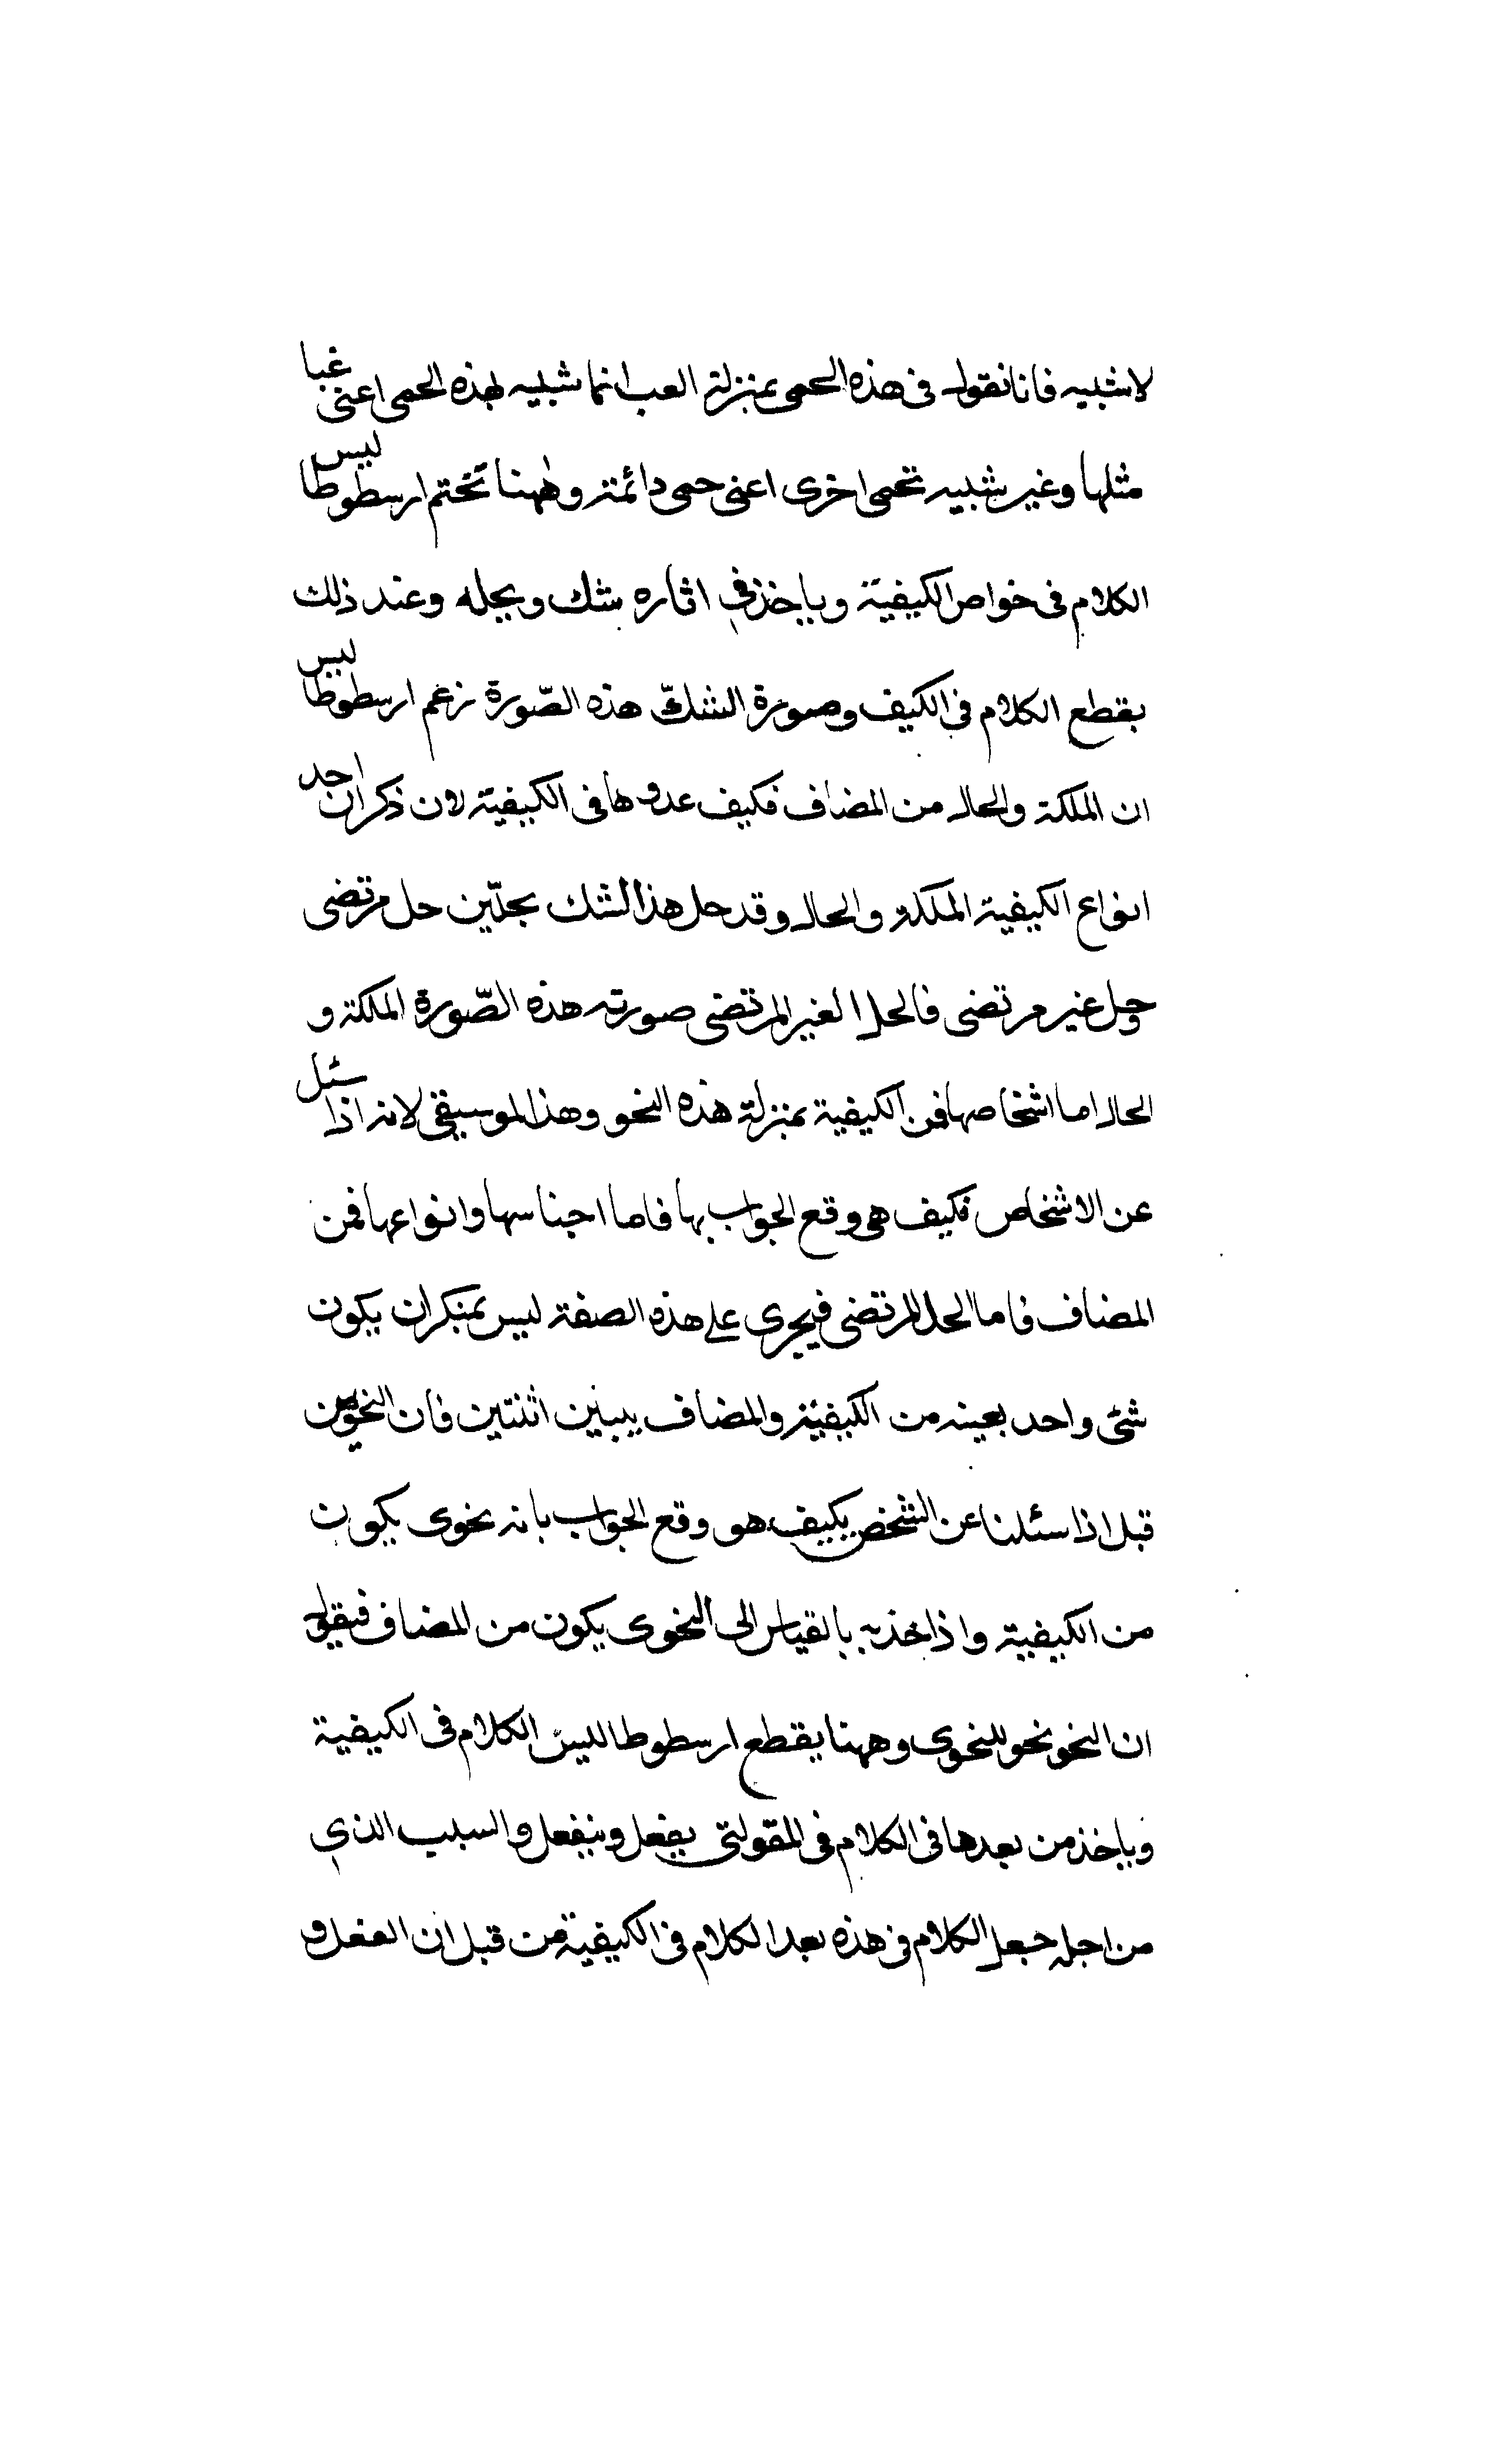 لاشبيه فانا نقول فى هذه الحمى بمنزلة العب انما شبيه لهذه الحمى اعنى غبا
مثلها وغير شبيه تحمى اخرى اعنى حمى دائمة وههنا تختم ارسطوطاليس
الكلام فى خواص الكيفية وياخذ فى اثاره شك ويحله وعند ذلك
يقطع الكلام فى الكيف وصورة الشك هذه الصّورة زعم ارسطوطاليس
ان الملكة والحال من المضاف فكيف عدوها فى الكيفية لان ذكر ان احد
انواع الكيفية الملكة والحال وقد حل هذا الشك بحلّين حل مرتضى
وحل غير مرتضى فالحل الغير المرتضى صورته هذه الصّورة الملكة و
الحال اما اشخاصها فمن الكيفية بمنزلة هذه النحو وهذا الموسيقى لانه اذا سئل
عن الاشخاص فكيف هى وقع الجواب بها فاما اجناسها وانواعها فمن
المضاف فاما الحل المرتضى فيجرى على هذه الصفة ليس بمنكر ان يكون
شئ واحد بعينه من الكيفية والمضاف بسببين اثنتين فان النحو من
قبل اذا سئلنا عن الشخص بكيف هو وقع الجواب بانه نحوى يكون
من الكيفية واذا اخذ به بالقياس الى النحوى يكون من المضاف فيقول
ان النحو نحو للنحوى وههنا يقطع ارسطوطاليس الكلام فى الكيفية
وياخذ من بعدها فى الكلام فى المقولتى يفعل وينفعل والسبب الذى
من اجله جعل الكلام فى هذه بعد الكلام فى الكيفية من قبل ان الفعل و